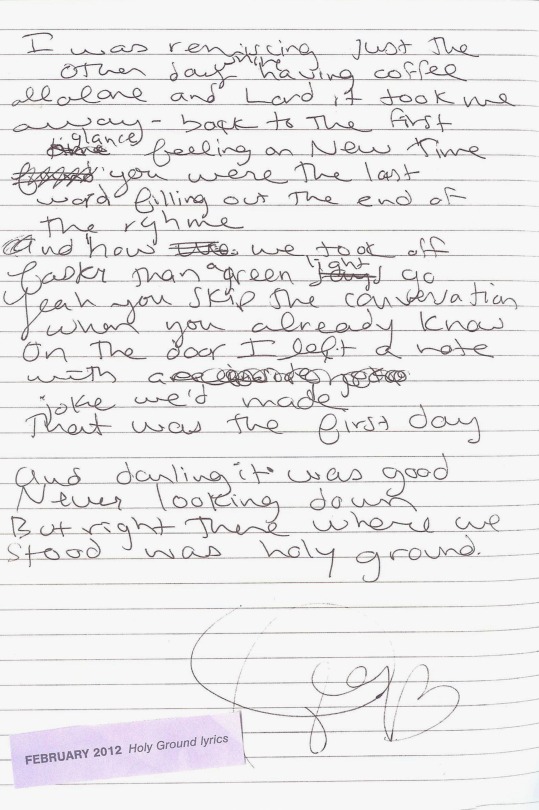 I was remniscing just the
other day while having coffee
all alone and Lord it took me
away - back to the first
glance feeling on New Time
you were the last
word filling out the end of
the ryhme
And how we took off
faskr than a green light go
Yeah you skip the conversation
when you already know
On the door I left a note
with a
joke we'd made
That was the first day
And darling it was good
Never looking down
But right there where we
stood was holy ground.
FEBRUARY 2012 Holy Ground lyrics